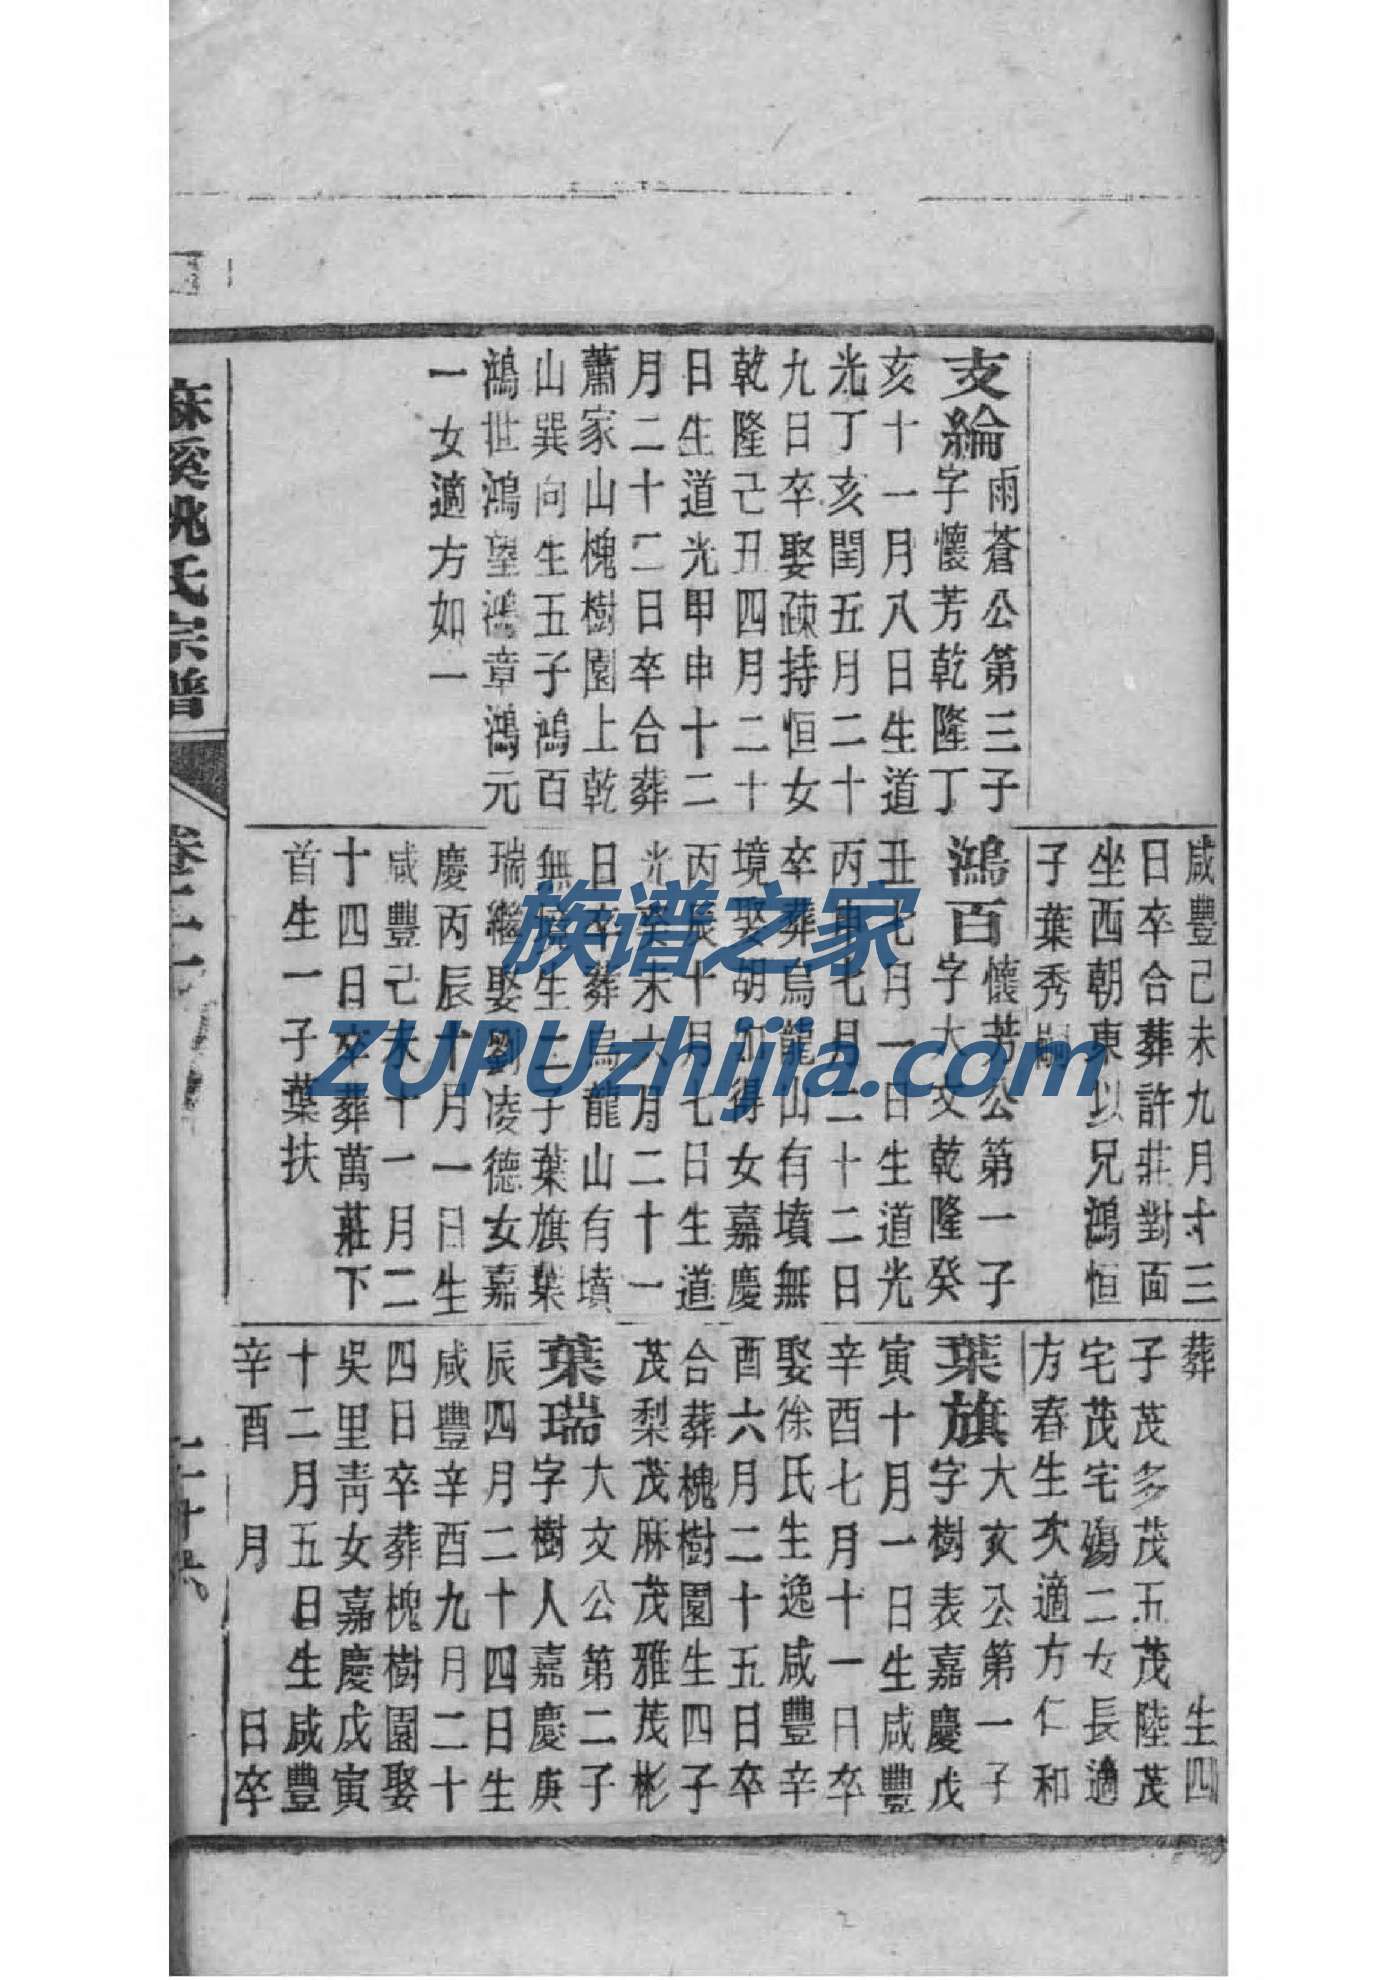 支綸
雨蒼公第三子
字懷芳乾隆丁
亥十一月八日生道
光丁亥閏五月二十
九日卒娶疎持恒女
乾隆己丑四月二十
日生道光甲申十二
月二十二日卒合葬
蕭家山槐樹園上乾
山巽向生五子鴻百
鴻世鴻望鴻章鴻元
一女適方如一
咸豐己未九月十三
日卒合葬許莊對面
坐西朝東以兄鴻恒
子葉秀嗣
鴻百
懷芳公第一子
字大文乾隆癸
丑七月一日生道光
丙申七月二十二日
卒葬烏龍山有墳無
境娶胡加得女嘉慶
丙辰十月七日生道
光癸未六月二十一
日卒葬烏龍山有墳
無境生二子葉旗葉
瑞繼娶劉凌德女嘉
慶丙辰十月一日生
咸豐己未十一月二
十四日卒葬萬莊下
首生一子葉扶
葬 生四
子茂多茂五茂陸茂
宅茂宅殤二女長適
方春生次適方仁和
葉旗
大亥公第一子
字樹表嘉慶戊
寅十月一日生咸豐
辛酉七月十一日卒
娶徐氏生逸咸豐辛
酉六月二十五日卒
合葬槐樹園生四子
茂梨茂麻茂雅茂彬
葉瑞
大文公第二子
字樹人嘉慶庚
辰四月二十四日生
咸豐辛酉九月二十
四日卒葬槐樹園娶
吳里青女嘉慶戊寅
十二月五日生咸豐
辛酉 月 日卒
麻溪姚氏宗譜
族谱之家
ZUPUzhijia.com